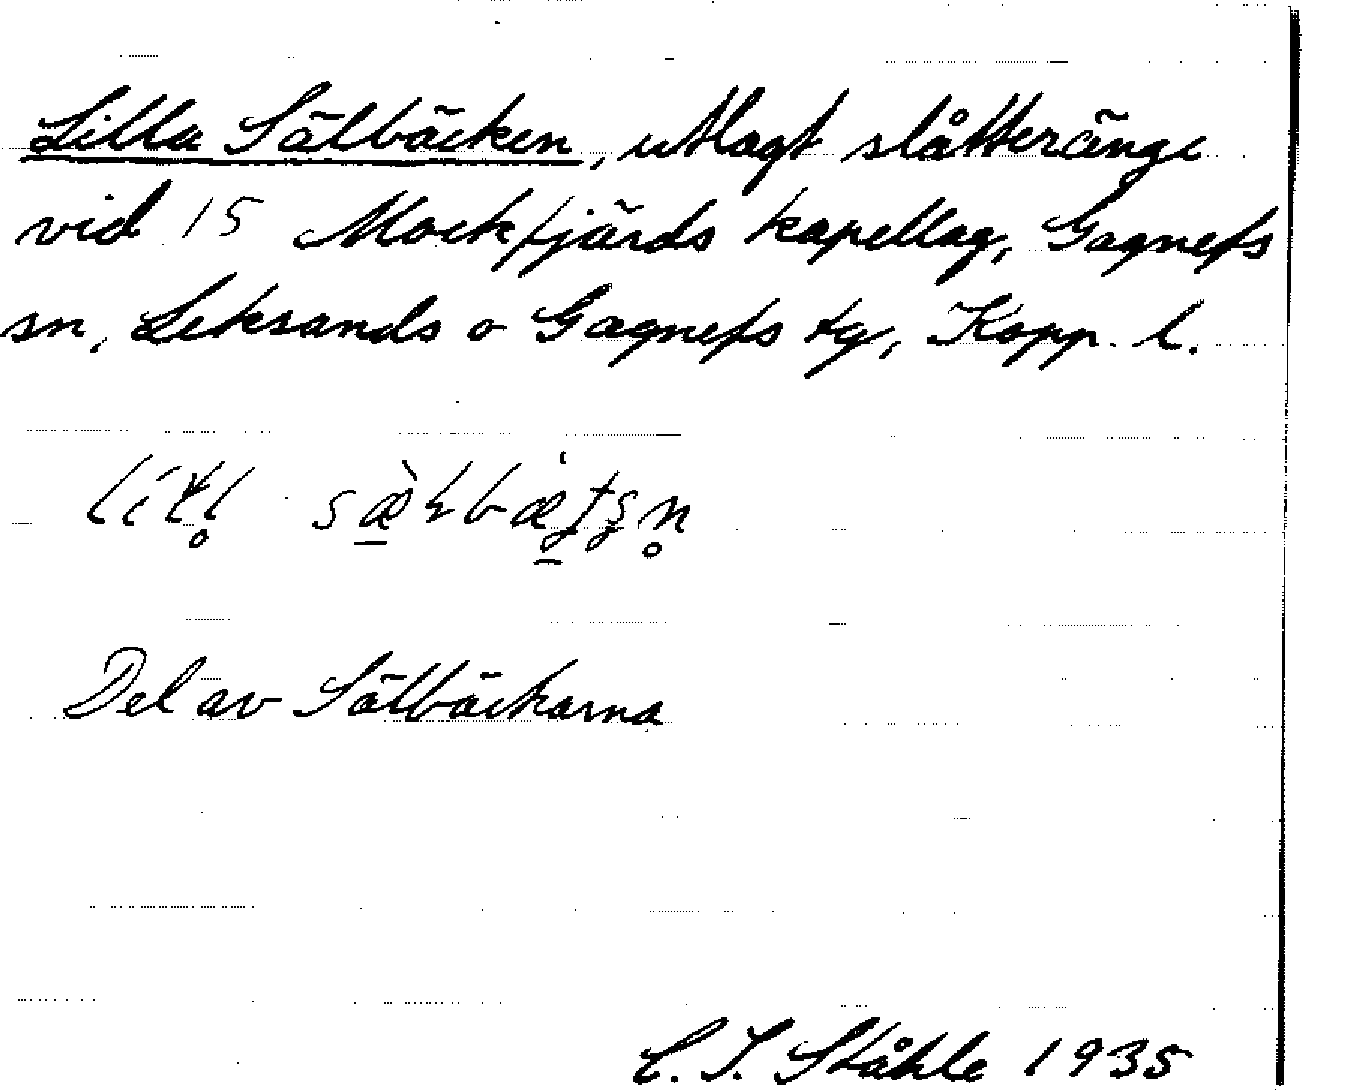 Lilla Sälbäcken, utlagt slåtteränge
vid 15 Mockfjärds kapellag, Gagnefs
sn, Leksands o Gagnefs tg, Kopp. l.
Del av Sälbäckarna
C. I. Ståhle 1935